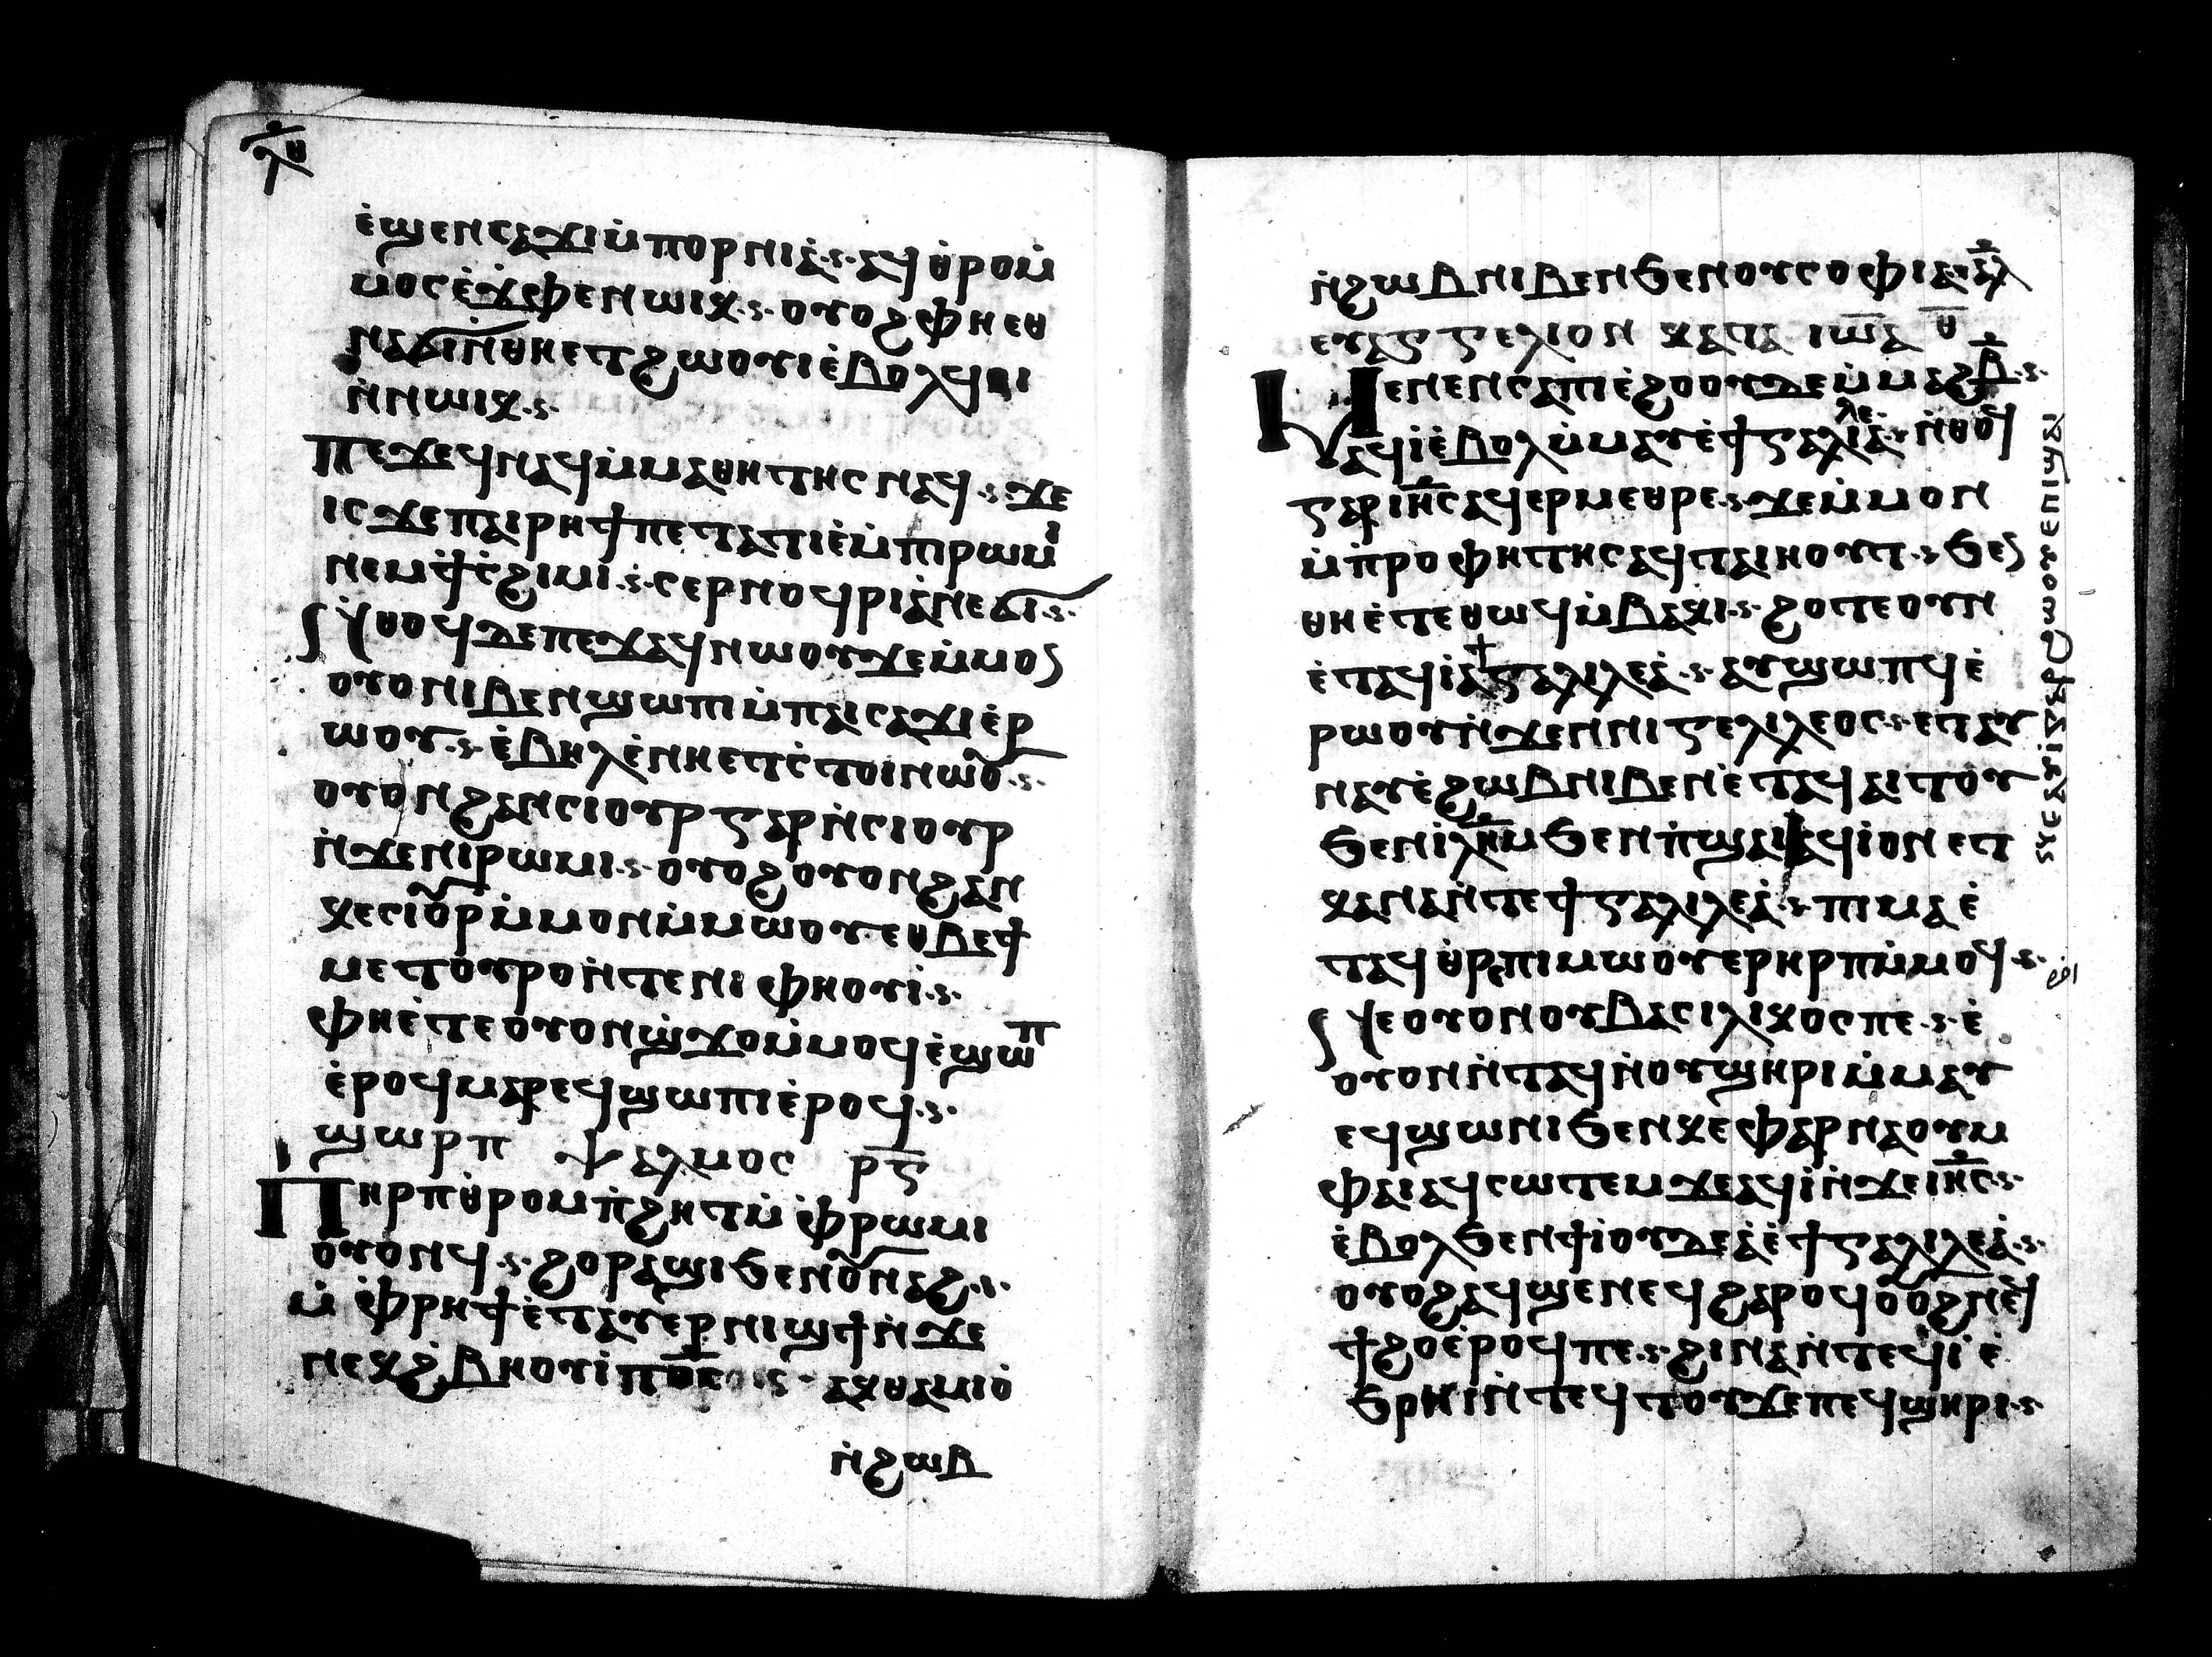 ⲗⲑ
ⲉ̀ϣⲉⲛⲥⲁϫⲓⲙ̀ⲡⲟⲣⲛⲓⲁ̀· ⲁϥⲑ̀ⲣⲟⲙ̀
ⲙⲟⲥⲉ̀ϫⲫⲉⲛⲱⲓⲕ· ⲟⲩⲟϩⲫⲏⲉⲑ
ⲛⲁϭⲓⲛ̀ⲑⲏⲉⲧϩⲱⲟⲩⲓⲉ̀ⲃⲟⲗϥⲟⲓ
ⲛ̀ⲛⲱⲓⲕ·
ⲡⲉϫⲉϥⲛⲁϥⲙ̀ⲙⲁⲑⲏⲧⲏⲥ ⲛⲁϥ· ϫⲉ
ⲓⲥϫⲉⲡⲁⲓⲣⲏϯⲡⲉⲧⲁⲧⲓⲉ̀ⲙ̀ⲡⲓⲣⲱⲙⲓ
ⲛⲉⲙϯⲥ̀ϩⲓⲙⲓ· ⲥⲉⲣⲛⲟϥⲣⲓⲁ̀ⲛⲉϭⲓ·
ⲛ̀ⲑⲟϥⲇⲉⲡⲉϫⲁϥⲛⲱⲟⲩϫⲉⲙ̀ⲙⲟⲛ
ⲟⲩⲟⲛⲓⲃⲉⲛϣⲱⲡⲙ̀ⲡⲁⲓⲥⲁϫⲓⲉ̀ⲣ
ⲱⲟⲩ· ⲉ̀ⲃⲏⲗⲉ̀ⲛⲏⲉⲧⲥ̀ⲧⲟⲓⲛⲱⲟⲩ·
ⲟⲩⲟⲛϩⲁⲛⲥⲓⲟⲩⲣ ⲅⲁⲣⲛ̀ⲥⲓⲟⲩⲣ
ⲛ̀ϫⲉⲛⲓⲣⲱⲙⲓ· ⲟⲩⲟϩⲟⲩⲟⲛϩⲁⲛ
ⲕⲉⲥⲓⲟⲩⲣⲙ̀ⲙⲟⲛⲙ̀ⲙⲱⲟⲩ ⲉⲑⲃⲉϯ
ⲙⲉⲧⲟⲩⲣⲟⲛ̀ⲧⲉⲛⲓ ⲫⲏⲟⲩⲓ̀·
ⲫⲏⲉ̀ⲧⲉⲟⲩⲟⲛϣ̀ϫⲟⲙ̀ⲙⲟϥⲉ̀ϣⲱⲡ
ⲉ̀ⲣⲟϥⲙⲁⲣⲉϥϣⲱⲡⲓⲉ̀ⲣⲟϥ·
ϣⲱⲣⲡ ⲯⲁⲗⲙⲟⲥ ⲣⲅ
ⲡⲏⲣⲡⲑ̀ⲣⲟⲙⲡ̀ϩⲏⲧⲙ̀ ⲫ̀ⲣⲱⲙⲓ
ⲟⲩⲟⲛϥ· ϩⲟⲣⲁϣⲓϧⲉⲛⲟⲩⲛⲁϩ·
ⲙ̀ ⲫ̀ⲣⲏϯⲉ̀ⲧⲁⲩⲉⲣⲛⲓϣϯⲛ̀ ϫⲉ
ⲛⲉⲕϩ̀ⲃⲏⲟⲩⲓ̀ⲡϭⲥ· ⲁⲕⲑⲁⲙⲓⲟ̀
ⲛ̀ϩⲱⲃ
ⲛ̀ϩⲱⲃⲛⲓⲃⲉⲛϧⲉⲛⲟⲩⲥⲟⲫⲓⲁ· ⲁⲗ
ⲉⲩⲁⲅⲅⲉⲗⲓⲟⲛ ⲕⲁⲧⲁ ⲓⲱⲁ ⲑ
ⲙⲉⲛⲉⲛⲥⲁⲡⲓⲉ̀ϩⲟⲟⲩⲇⲉⲙ̀ⲙⲁϩⲃ·
ⲁϥⲓ̀ⲉ̀ⲃⲟⲗⲙ̀ⲙⲁⲩⲉ̀ϯⲅⲁⲗⲓⲗⲉⲁ̀· ⲛ̀ⲑⲟϥ
ⲅⲁⲣ ⲓⲏⲥ ⲁϥⲉⲣⲙⲉⲑⲣⲉ· ϫⲉⲙ̀ⲙⲟⲛ
ⲙ̀ⲡ̀ⲣⲟⲫⲏⲧⲏⲥⲁϥⲧⲁⲓⲏⲟⲩⲧ· ϧⲉⲛ
ⲑⲏⲉ̀ⲧⲉⲑⲱϥⲙ̀ⲃⲁⲕⲓ· ϩⲟⲧⲉⲟⲩⲛ
ⲉ̀ⲧⲁϥⲓ̀ⲁ̀ϯⲅⲁⲗⲓⲗⲉⲁ̀· ⲁⲩϣⲱⲡϥⲉ̀
ⲣⲱⲟⲩⲛ̀ϫⲉⲛⲛⲓⲅⲉⲗⲓⲗⲉⲟⲥ· ⲉⲧⲁⲩ
ⲛⲁⲩⲉ̀ϩⲱⲃⲛⲓⲃⲉⲛⲉ̀ⲧⲁϥⲁⲓⲧⲟⲩ
ϧⲉⲛⲓⲗⲏⲙ ϧⲉⲛⲡ̀ϣⲁⲓ ⲁϥⲓ̀ⲟⲛ ⲉⲧ
ⲕⲁⲛⲁⲛ̀ⲧⲉϯⲅⲁⲗⲓⲗⲉⲁ̀· ⲡⲓⲙⲁⲉ̀
ⲧⲁϥ ⲑ̀ⲣⲉⲡⲓⲙⲱⲟⲩⲉⲣⲏⲣⲡⲙ̀ⲙⲟϥ·
ⲛⲉⲟⲩⲟⲛⲟⲩⲃⲁⲥⲓⲗⲓⲕⲟⲥⲡⲉ· ⲉ̀
ⲟⲩⲟⲛⲛ̀ⲧⲁϥⲛ̀ⲟⲩϣⲏⲣⲓⲙ̀ⲙⲁⲩ
ⲉϥϣⲱⲛⲓϧⲉⲛⲕⲉⲫⲁⲣⲛⲁⲟⲩⲙ
ⲫⲁⲓⲁϥⲥⲱⲧⲉⲙϫⲉⲁϥⲓ̀ⲛ̀ϫⲉⲓⲏⲥ·
ⲉ̀ⲃⲟⲗϧⲉⲛϯⲓ̀ⲟⲩⲇⲉⲁ̀ⲉ̀ϯⲅⲁⲗⲓⲗⲉⲁ̀·
ⲟⲩⲟϩⲁϥϣⲉⲛⲉϥ ϩⲁⲣⲟϥⲟⲩⲟϩⲛⲉϥ
ϯϩⲟⲉ̀ⲣⲟϥⲡⲉ· ϩⲓⲛⲁⲛ̀ⲧⲉϥⲓ̀ ⲉ̀
ϧⲣⲏⲓⲛ̀ⲧⲉϥⲧⲟⲩϫⲉⲡⲉϥϣⲏⲣⲓ·